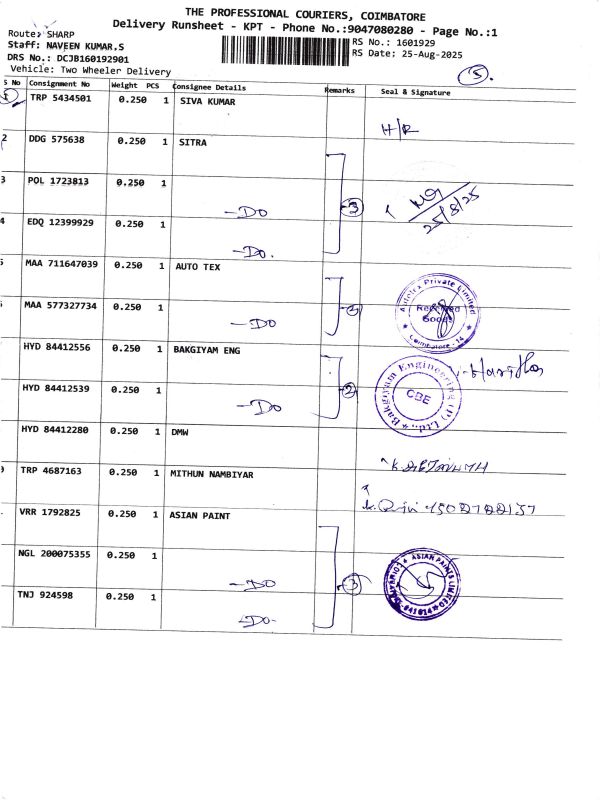 THE PROFESSIONAL COURIERS, COIMBATORE
Delivery Runsheet - KPT - Phone No.:9047080280 - Page No.:1
Route: SHARP
Staff: NAVEEN KUMAR,S
RS No.: 1601929
DRS No.: DCJB160192901
RS Date: 25-Aug-2025
Vehicle: Two Wheeler Delivery
5
S No Consignment No Weight PCS Consignee Details Remarks Seal & Signature
1 TRP 5434501 0.250 1 SIVA KUMAR
H/R
2 DDG 575638 0.250 1 SITRA
3 POL 1723813 0.250 1
-DO 3
25/8/25
4 EDQ 12399929 0.250 1
-DO.
5 MAA 711647039 0.250 1 AUTO TEX
Autotex Private Limited
Received
Goods
Coimbatore - 14
MAA 577327734 0.250 1
-DO 2
HYD 84412556 0.250 1 BAKGIYAM ENG
Bakgiyam Engineering (P) Ltd.,
CBE
HYD 84412539 0.250 1
-DO 2
HYD 84412280 0.250 1 DMW
TRP 4687163 0.250 1 MITHUN NAMBIYAR
VRR 1792825 0.250 1 ASIAN PAINT
NGL 200075355 0.250 1
-DO 3
ASIAN PAINTS LIMITED
TNJ 924598 0.250 1
-DO-